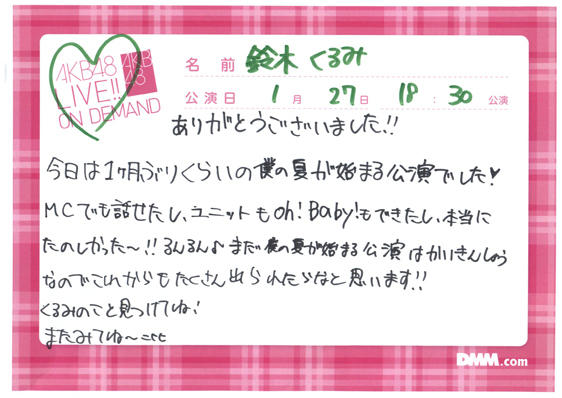 AKB48
LIVE!!
ON DEMAND
AKB
48
名前 鈴木 くるみ
公演日 1月 27日 18:30 公演
ありがとうございました!!
今日は1ヶ月ぶりくらいの僕の夏が始まる公演でした♥
MCでも話せたし、ユニットもoh! Baby!もできたし、本当に
たのしかった〜!!るんるん♪まだ僕の夏が始まる公演はかいきんしょう
なのでこれからもたくさん出られたらなと思います!!
くるみのこと見つけてね!
またみてね〜
DMM.com